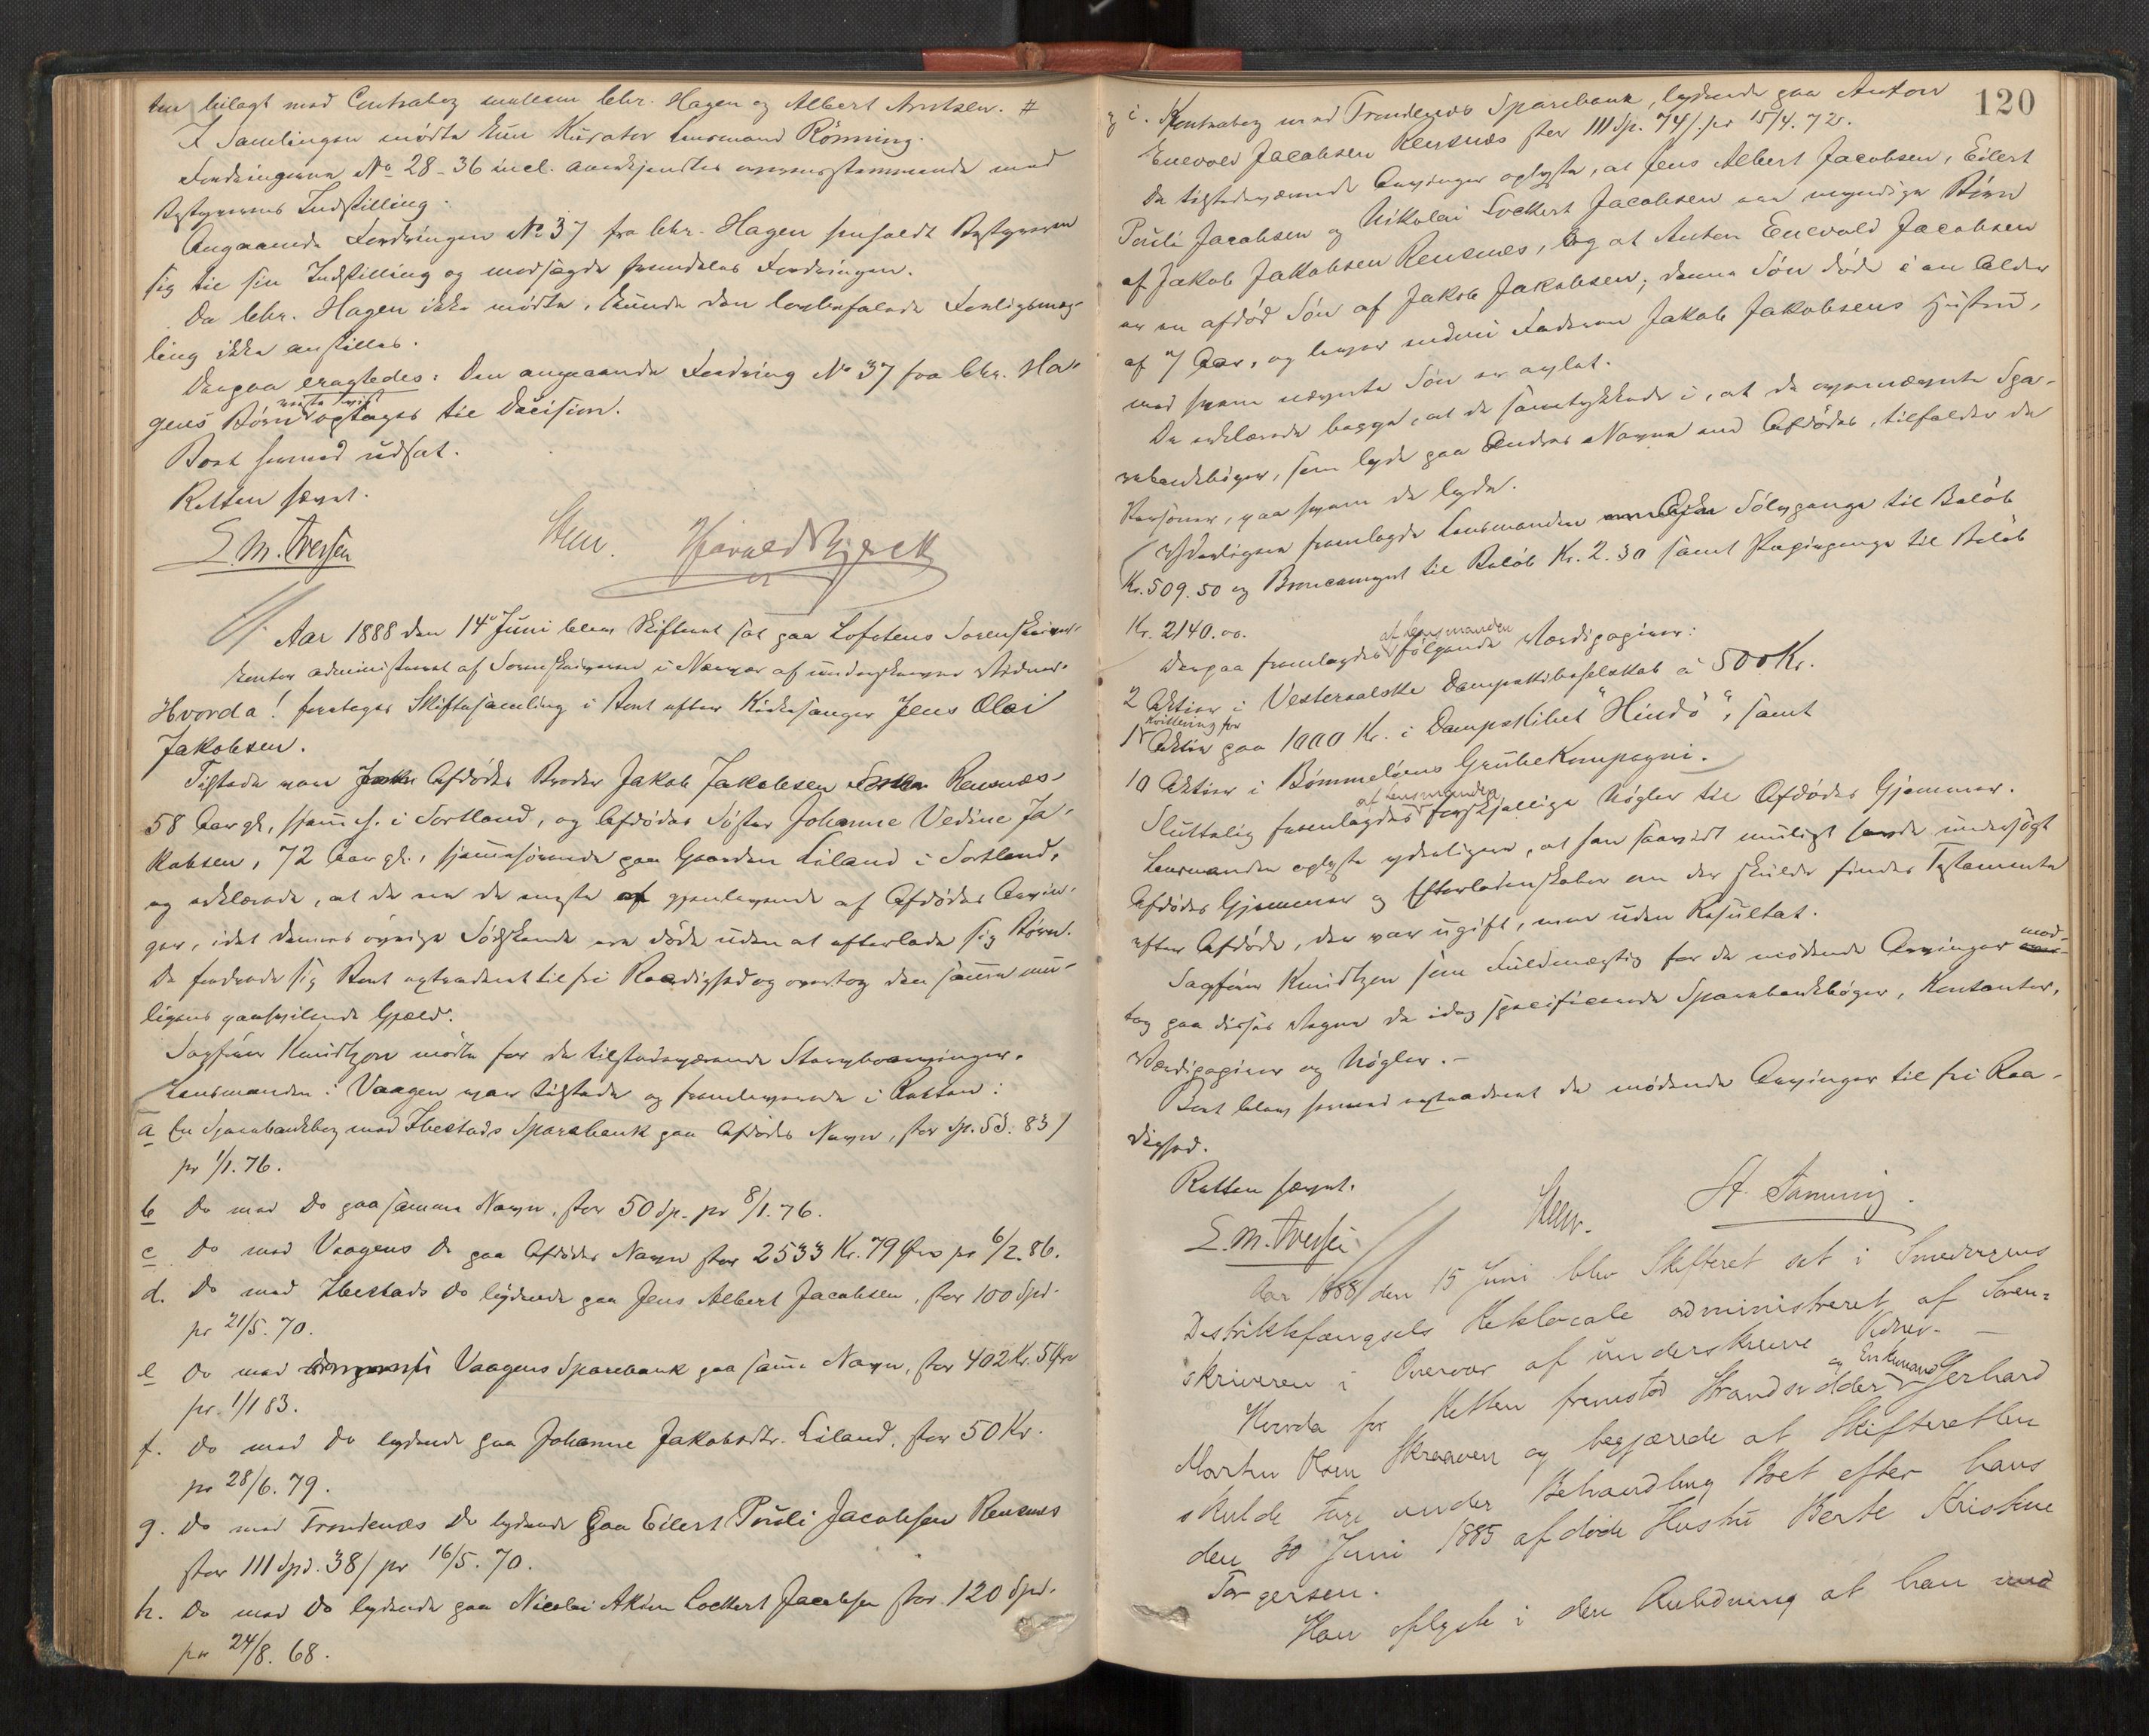 ten bilagt med Contrabog mellem lehr. Hagen og Albert Arntzen. #
I Samlingen mødte kun Kurator Lensmand Rønning.
Fordringerne No 28-36 incl. anerkjendtes overensstemmende med
Bestyrerens Indstilling.
Angaaende Fordringen No 37 fra lehr. Hagen henholdt Bestyreren
sig til sin Indstilling og modsagde fremdeles Fordringen.
Da lehr. Hagen ikke mødte, kunde den lovbefalede Forligsmæg-
ling ikke anstilles.
Derpaa eragtedes: Den angaaende Fordring No 37 fra lehr. Ha-
gens Børn reiste Tvist optages til Decision.
Boet hermed udsat.
Retten hævet.
E. M. Iversen Steen. Harald Bjerck
Aar 1888 den 14de Juni blev Skifteret sat paa Lofotens Sorenskriver-
kontor administreret af Sorenskriveren i Nærvær af underskrevne Vidner.
Hvorda! foretages Skiftesamling i Boet efter Kirkesanger Jens Olai
Jakobsen.
Tilstede var Afdødes Broder Jakob Jakobsen Rensnæs
58 Aar gl. hjemh. i Sortland, og Afdødes Søster Johanne Vedine Ja-
kobsen, 72 Aar gl., hjemmehørende paa Gaarden Liland i Sortland,
og erklærede, at de var de eneste gjenlevende af Afdødes Arvin-
ger, idet dennes øvrige Sødskende ere døde uden at efterlade sig Børn.
De fordrede sig Boet extraderet til fri Raadighed og overtog den samme mu-
ligens paahvilende Gjæld.
Sagfører Knudtzon mødte for de tilstedeværende Stervboarvinger.
Lensmanden i Vaagen var tilstede og fremleverede i Retten:
a En Sparebankbog med Ibestads Sparebank paa Afdødes Navn, stor Sp. 53. 83/
pr 1/1. 76.
b Do med Do paa samme Navn, stor 50 Sp. pr 8/1. 76.
c Do med Vaagens Do paa Afdødes Navn stor 2533 Kr. 79 Øre pr 6/2. 86.
d. Do med Ibestads Do lydende paa Jens Albert Jacobsen, stor 100 Spd.
pr 21/5. 70.
e Do med Vaagens Sparebank paa samme Navn, stor 402 Kr. 5 Øre
pr. 1/1 83.
f. Do med Do lydende paa Johanne Jakobsdtr. Liland, stor 50 Kr.
pr 28/6. 79.
g. Do med Trondenæs Do lydende paa Eilert Pauli Jacobsen Rensnæs
stor 111 Spd. 38/ pr 16/5. 70.
h. Do med Do lydende paa Nicolai Lockert Jacobsen stor 120 Spd.
pr 24/8. 68.
120
i. Kontrabog med Trondenæs Sparebank, lydende paa Anton
Enevold Jacobsen Rensnæs stor 111 Sp. 74/ pr 15/4. 72.
De tilstedeværende Arvinger oplyste, at Jens Albert Jacobsen, Eilert
Pauli Jacobsen og Nikolai Lockert Jacobsen ere myndige Børn
af Jakob Jakobsen Rensnæs, og at Anton Enevold Jacobsen
er en afdød Søn af Jakob Jakobsen; denne Søn døde i en Alder
af 7 Aar, og lever endnu Faderen Jakob Jakobsens Hustru,
med hvem nævnte Søn er avlet.
De erklærede begge, at de samtykkede i, at de ovennævnte Spa-
rebankbøger, som lyde paa Andres Navne end Afdødes, tilfalder de
Personer, paa hvem de lyde.
Yderligere fremlagde Lensmanden Sølvpenge til Beløb
Kr. 509.50 og Broncemynt til Beløb Kr. 2.30 samt Papirpenge til Beløb
Kr. 2140.00.
Derpaa fremlagdes af Lensmanden følgende Værdipapirer:
2 Aktier i Vesteraalske Dampskibsselskab à 500 Kr.
Kvittering for
1 Aktie paa 1000 Kr. i Dampskibet "Hindö", samt
10 Aktier i Bömmelöens Grubekompagni.
Sluttelig fremlagdes af Lensmanden forskjellige Nøgler til Afdødes Gjemmer.
Lensmanden oplyste yderligere, at han saavidt muligt havde undersøgt
Afdødes Gjemmer og Efterladenskaber om der skulde findes Testamente
efter Afdøde, der var ugift, men uden Resultat.
Sagfører Knudtzon som Fuldmægtig for de mødende Arvinger mod-
tog paa disses Vegne de idag specificerede Sparebankbøger, Kontanter,
Værdipapirer og Nøgler.-
Boet blev hermed extraderet de mødende Arvinger til fri Raa-
dighed.
Retten hævet.
E. M. Iversen Steen. St. Tamming.
Aar 1888 den 15 Juni blev Skifteret sat i Svolværgens
Distriktsfængsels Retslocale administreret af Soren-
skriveren i Overvær af underskrevne Vidner.-
Hvorda for Retten fremstod Strandsidder og Enkemand Gerhard
Martin Olsen Skraaven og begjærede at Skifteretten
skulde tage under Behandling Boet efter hans
den 30 Juni 1885 afdøde Hustru Berte Kristine
Torgersen.
Han oplyste i den Anledning at han